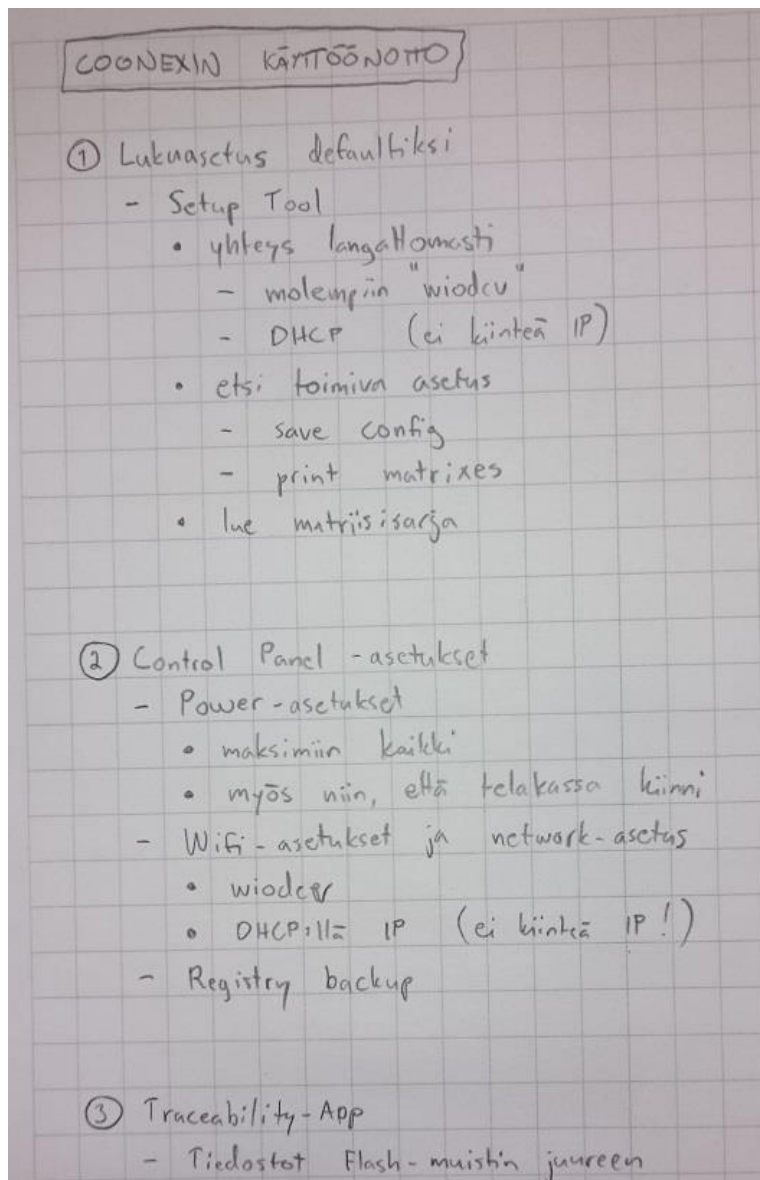 COGNEXIN KÄYTTÖÖNOTTO
① Lukuasetus defaultiksi
- Setup Tool
• yhteys langattomasti
- molempiin "wiodcv"
- DHCP (ei kiinteä IP)
• etsi toimiva asetus
- save config
- print matrixes
• lue matriisisarja
② Control Panel -asetukset
- Power-asetukset
• maksimiin kaikki
• myös niin, että telakassa kiinni
- Wifi-asetukset ja network-asetus
• wiodcv
• DHCP:llä IP (ei kiinteä IP!)
- Registry backup
③ Traceability-App
- Tiedostot Flash-muistin juureen